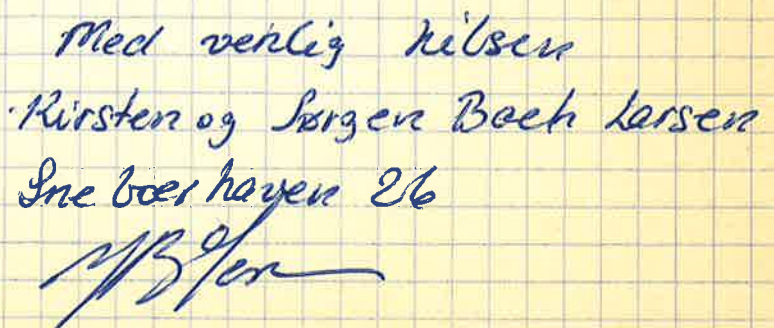 Med venlig hilsen
Kirsten og Jørgen Bach Larsen
Snebærhaven 26